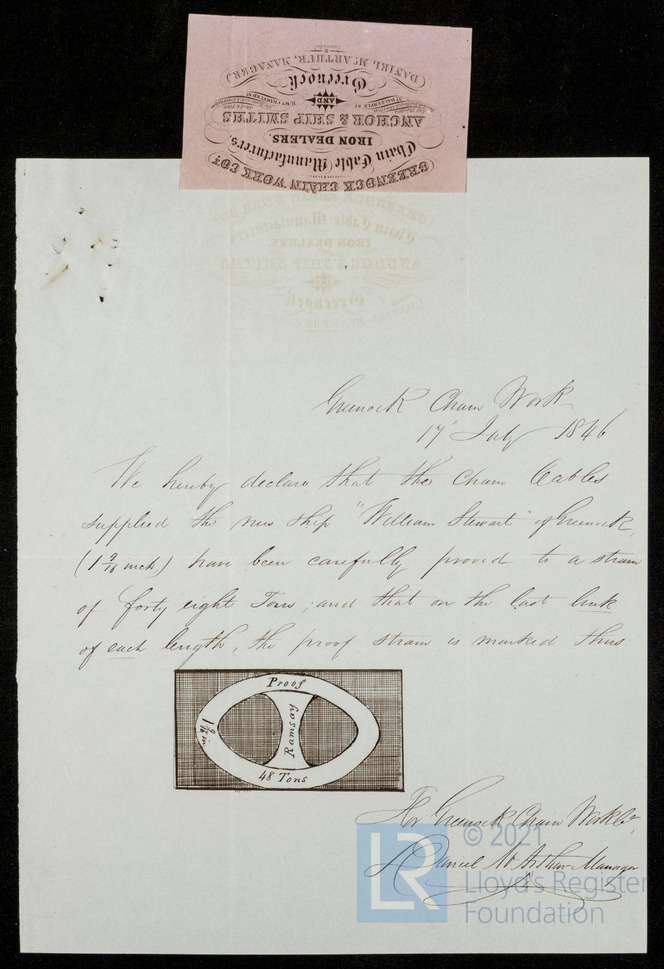 GREENOCK CHAIN WORK COY.
Chain Cable Manufacturers,
IRON DEALERS,
ANCHOR & SHIP SMITHS
AND
Greenock
(DANIEL McARTHUR, MANAGER)
Greenock Chain Work
17 July 1846
We hereby declare that the Chain Cables
supplied the new ship "William Stewart" of Greenock,
(1 9/16 inch) have been carefully proved to a strain
of forty eight Tons; and that on the last link
of each length, the proof strain is marked thus:
Proof
1 9/16 in.
Ramsay
48 Tons
For Greenock Chain Work Co.
Daniel McArthur Manager
LR
© 2021
Lloyd's Register
Foundation